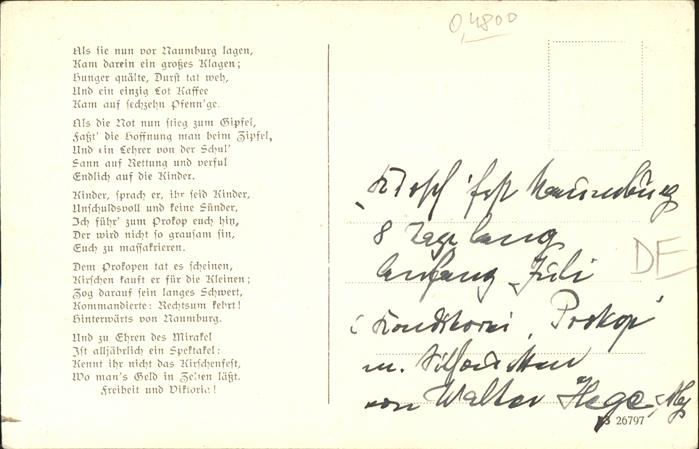 0,4800
Als sie nun vor Naumburg lagen,
Kam darein ein großes Klagen;
Hunger quälte, Durst tat weh,
Und ein einzig Lot Kaffee
Kam auf sechzehn Pfenn'ge.
Als die Not nun stieg zum Gipfel,
Faßt' die Hoffnung man beim Zipfel,
Und ein Lehrer von der Schul'
Sann auf Rettung und verful
Endlich auf die Kinder.
Kinder, sprach er, ihr seid Kinder,
Unschuldsvoll und keine Sünder,
Ich führ' zum Prokop euch hin,
Der wird nicht so grausam sin,
Euch zu massakrieren.
Dem Prokopen tat es scheinen,
Kirschen kauft er für die Kleinen;
Zog darauf sein langes Schwert,
Kommandierte: Rechtsum kehrt!
Hinterwärts von Naumburg.
Und zu Ehren des Mirakel
Ist alljährlich ein Spektakel:
Kennt ihr nicht das Kirschenfest,
Wo man's Geld in Zelten läßt.
Freiheit und Viktoria!
Naumburg
8 Tage lang
Anfang Juli
Konditorei "Prokop"
m.
von Walter Hege
DE
26797